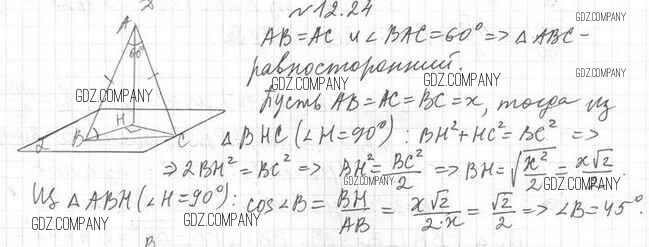 №12.24
AB=AC и ∠BAC=60° => △ABC-
равносторонний.
Пусть AB=AC=BC=x, тогда из
△BHC (∠H=90°): BH²+HC²=BC² =>
=> 2BH²=BC² => BH²=BC²/2 => BH=√(x²/2)=x√2/2.
Из △ABH (∠H=90°): cos∠B=BH/AB=x√2/2·x=√2/2 => ∠B=45°.
A
60°
H
B
C
α
GDZ.COMPANY
GDZ.COMPANY
GDZ.COMPANY
GDZ.COMPANY
GDZ.COMPANY
GDZ.COMPANY
GDZ.COMPANY
GDZ.COMPANY
GDZ.COMPANY
GDZ.COMPANY
GDZ.COMPANY
GDZ.COMPANY